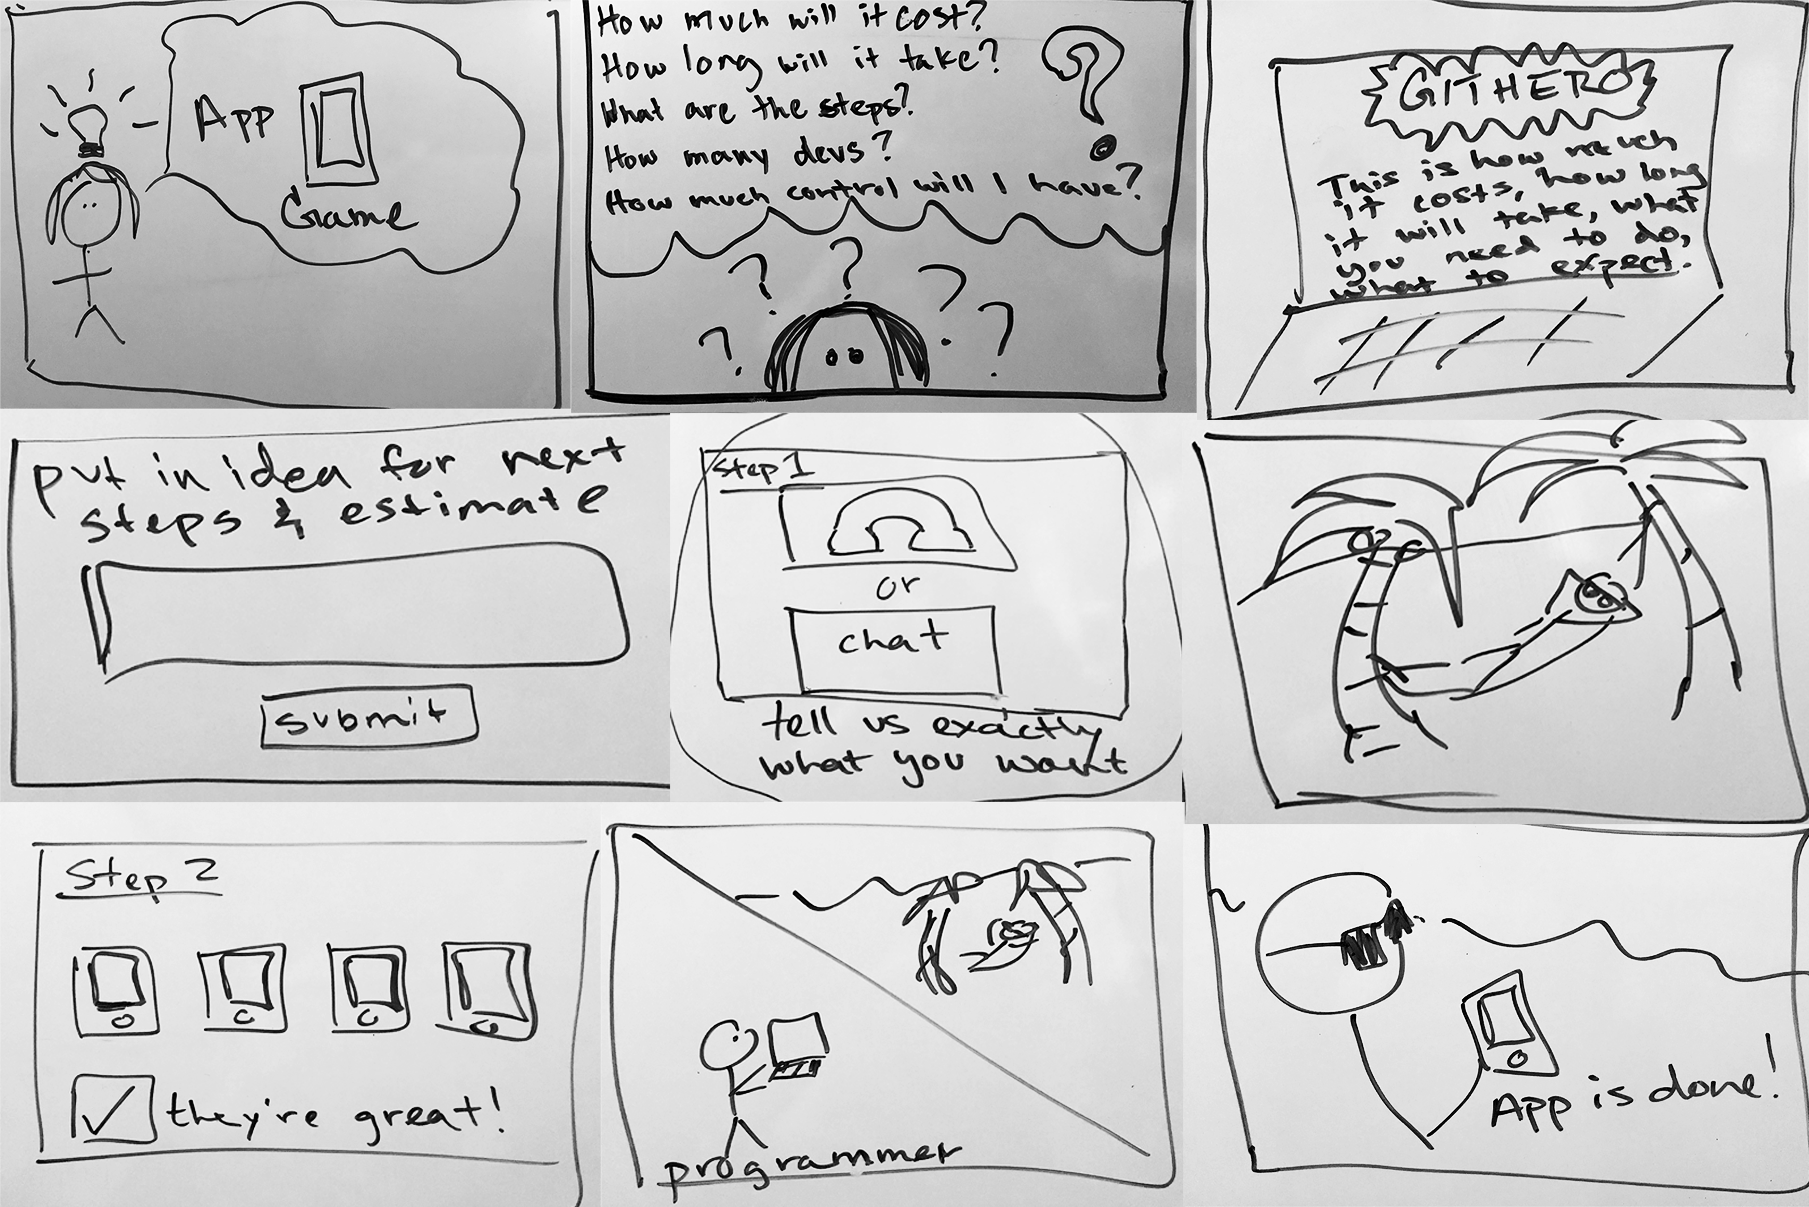 App
Game
How much will it cost?
How long will it take?
What are the steps?
How many devs?
How much control will I have?
?
? ? ? ? ?
GITHERO
This is how much
it costs, how long
it will take, what
you need to do,
what to expect.
put in idea for next
steps & estimate
submit
Step 1
or
chat
tell us exactly
what you want
Step 2
they're great!
programmer
App is done!